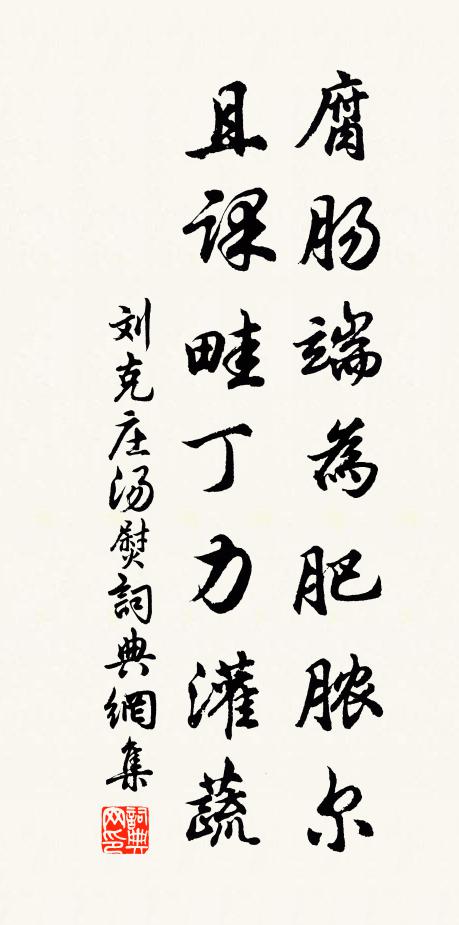 腐肠端為肥脓尔
且课畦丁力灌蔬
刘克庄汤熨詞典網集
詞典网印